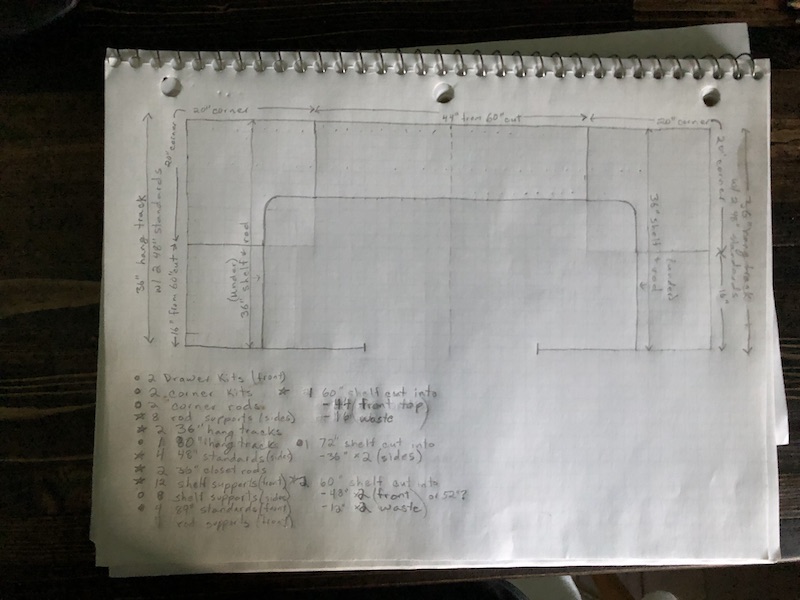 20" corner
44" from 60" cut
20" corner
36" hang track
w/ 2 48" standards
20" corner
16" from 60" cut
(under)
36" shelf + rod
36" shelf + rod
(under)
20" corner
16"
36" hang track
w/ 2 48" standards
2 Drawer Kits (front)
2 corner kits
2 corner rods
8 rod supports (sides)
2 36" hang tracks
1 80" hang track
4 48" standards (sides)
2 36" closet rods
12 shelf supports (front)
8 shelf supports (sides)
4 84" standards (front)
rod supports (front)
1 60" shelf cut into
- 44 front top
- 16 waste
1 72" shelf cut into
- 36" x 2 (sides)
2 60" shelf cut into
- 48" x2 (front) or 52"?
- 12" x2 waste